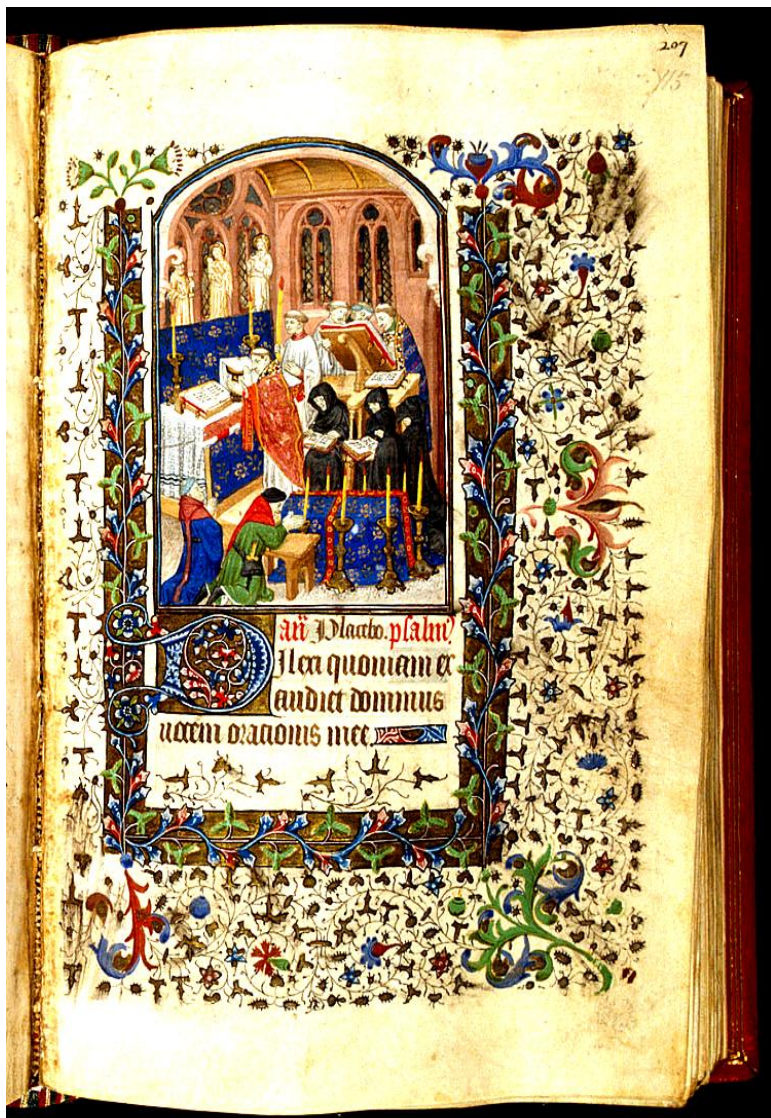 207
115
añ Placebo. psalm̄
Dilexi quoniam ex
audiet dominus
uocem orationis mee.